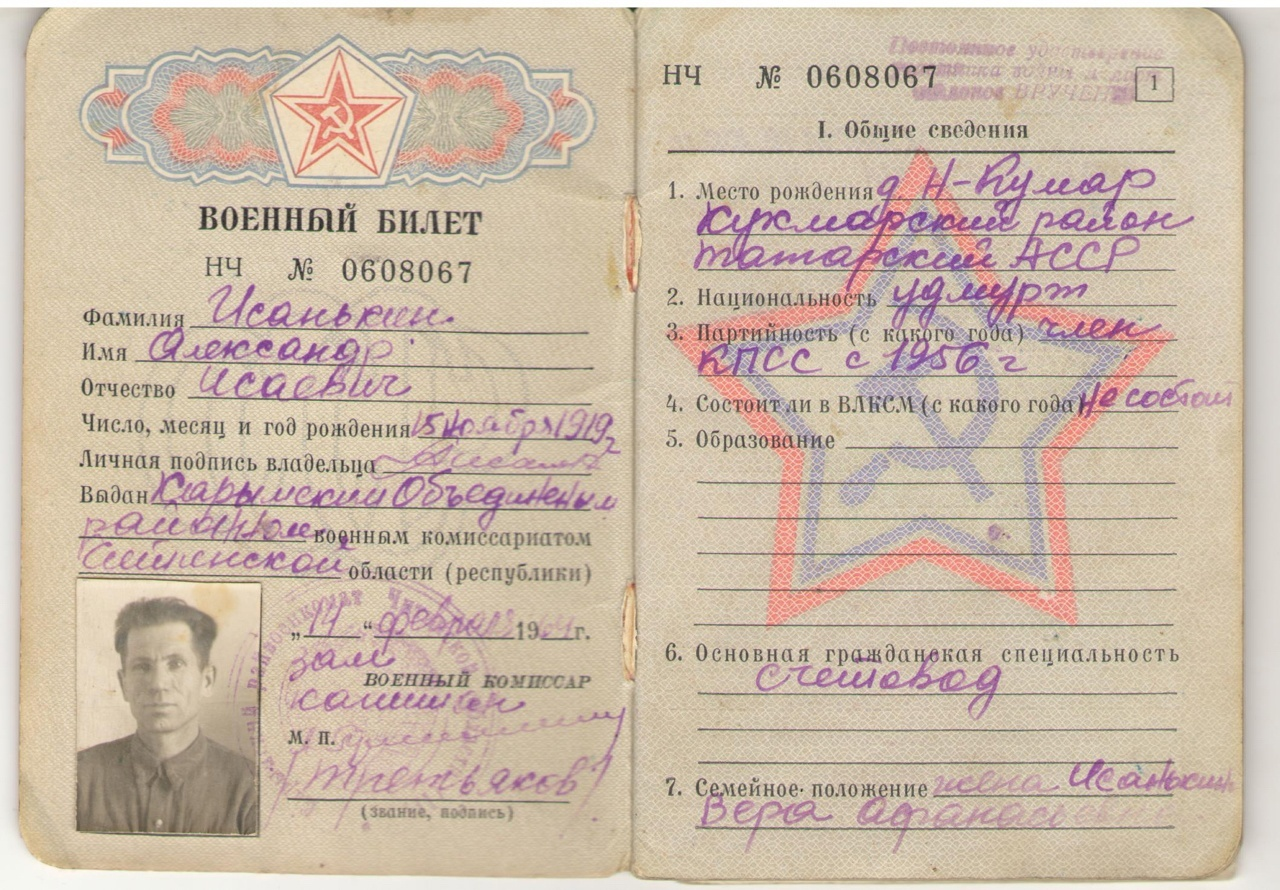 ВОЕННЫЙ БИЛЕТ
НЧ № 0608067
Фамилия Исанькин
Имя Александр
Отчество Исаевич
Число, месяц и год рождения 15 ноября 1919 г
Личная подпись владельца
Выдан Карымским Объединеным
районном военным комиссариатом
Читинской области (республики)
„14“ февраля 1964 г.
зам
ВОЕННЫЙ КОМИССАР
капитан
М. П.
/Третьяков/
(звание, подпись)
НЧ № 0608067
Постоянное удостоверение
ВРУЧЕНО
1
I. Общие сведения
1. Место рождения д Н-Кумор
Кукморский район
татарский АССР
2. Национальность удмурт
3. Партийность (с какого года) член
КПСС с 1956 г
4. Состоит ли в ВЛКСМ (с какого года) не состоит
5. Образование
6. Основная гражданская специальность
счетовод
7. Семейное положение жена Исанькина
Вера Афанасьевна